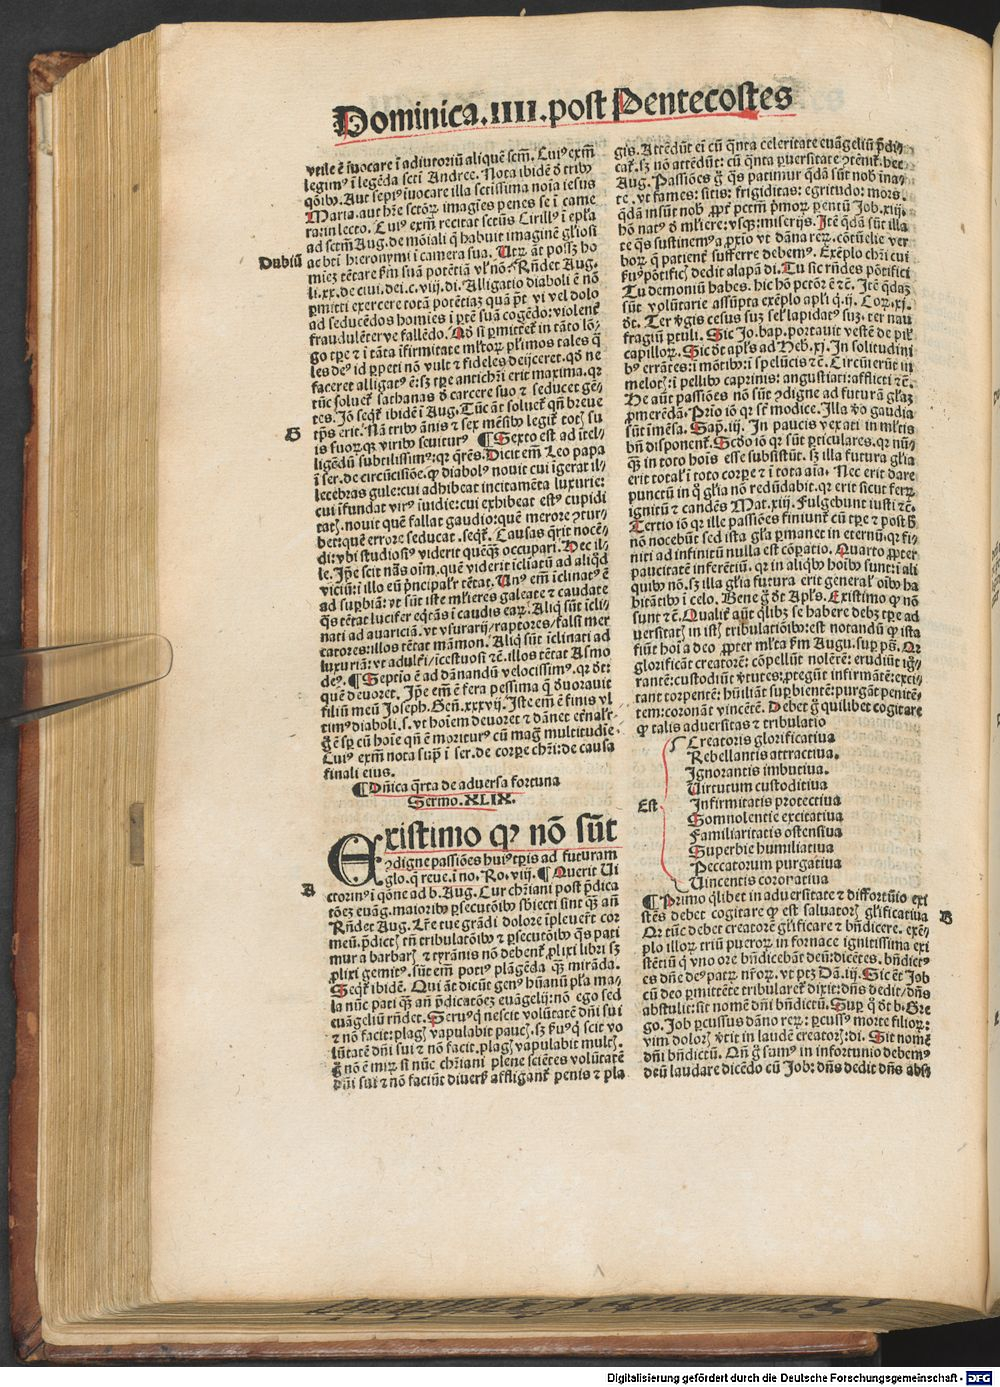 Dominica.IIII.post Pentecostes
vtile ē īuocare ī adiutoriū aliquē scm̄. Cuiꝰ exm̄
legimꝰ ī legēda scti Andree. Nota ibidē ō tribꝰ
Aut sepiꝰ iuocare illa sctissima noīa iesus
Maria.aut hr̄e sctōꝝ imagīes penes se ī came
ra:in lecto. Cuiꝰ exm̄ recitat sctūs Cirillꝰ ī epl̄a
ad sctm̄ Aug. de mōiali q̄ habuit imaginē gl̄iosi
Dubiū
ac bt̄i hieronymi ī camera sua. Utꝝ āt possꝫ ho
miez tētare s̄m suā potētiā vl̓ nō: Rn̄det Aug.
li.xx.de ciui.dei.c.viij.di. Alligatio diaboli ē nō
ꝑmitti exercere totā potētiaꝫ quā pt̄ vi vel dolo
ad seducēdos homies ī ꝑtē suā cogēdo:violent̓
fraudulēterve fallēdo. Aō si ꝑmitteret̓ in tāto lō/
go tꝑe ⁊ ī tāta īfirmitate ml̓toꝝ pl̓imos tales q̄
les deꝰ id ꝑpeti nō vult ⁊ fideles deijceret.qd̄ ne
faceret alligatꝰ ē:sꝫ tꝑe antichr̄i erit maxima.qꝛ
tūc soluet̓ sathanas ō carcere suo ⁊ seducet gē/
tes. Jō seqt̓ ibidē ī Aug. Tūc āt soluet̓ qn̄ breue
G
tp̄s erit. Nā tribꝰ ānis ⁊ sex mēsibꝰ legit̓ totꝭ su
is fuoꝝqꝫ viribꝰ seuiturꝰ ¶Sexto est ad ītel/
ligēdū subtilissimꝰ:qꝛ q̄rēs. Dicit em̄ Leo papa
ī ser. de circūcisiōe. ꝙ diabolꝰ nouit cui īgerat il/
lecebras gule:cui adhibeat incitamēta luxurie:
cui īfundat virꝰ īuidie:cui exhibeat estꝰ cupidi
tatꝭ.nouit quē fallat gaudio:quē merore ꝯtur/
bet:quē errore seducat .seqt̓. Causas q̄rit nocē/
di:vbi studiosiꝰ viderit quēqꝫ occupari. Hec il/
le. Jp̄e scit nās oīm.quē viderit īcliatū ad aliqd̄
viciū:ī illo eū pn̄cipalr̄ tētat. Unꝰ em̄ īclinatꝰ ē
ad suꝑbiā:vt sūt iste ml̓ieres galeate ⁊ caudate
q̄s tētat lucifer eq̄tās ī caudis eaꝝ. Aliq̄ sūt īcli/
nati ad auariciā.vt vsurarij/raptores/falsi mer
catores:illos tētat māmon. Aliq̄ sūt īclinati ad
luxuriā:vt adulteri/īcestuosi ⁊c̄.illos tētat Asmo
deꝰ. ¶Septio ē ad dānandū velocissimꝰ.qꝛ d̄t:
quē deuoret. Jp̄e em̄ ē fera pessima q̄ ōuorauit
filiū meū Joseph. Gen̄.xxxvij. Jste em̄ ē finis vl
timꝰ diaboli.s.vt hoīem deuoret ⁊ dānet etnalr̄
ḡ ē sꝑ cū hoīe qn̄ ē moriturꝰ cū mag multitudīe.
Cuiꝰ exm̄ nota supͣ ī ser.de corꝑe chr̄i:de causa
finali eius.
¶Dn̄ica q̄rta de aduersa fortuna
Sermo.XLIX.
Existimo ꝙ nō sūt
ꝯdigne passiōes huiꝰ tꝑis ad futuram
glo.q̄ reue.ī no.Ro.viij. ¶Querit Ui
A
ctorinꝰ ī qōne ad b.Aug. Cur chr̄iani post p̄dica
tōez euāg.maioribꝰ ꝑsecutōibꝰ sb̄iecti sint qͣꝫ an̄
Rn̄det Aug. Lr̄e tue grādi dolore īpleuert̄ cor
meū.p̄dictꝭ tn̄ tribulatōibꝰ ⁊ ꝑsecutōibꝰ q̄s pati
mur a barbarꝭ ⁊ tyrānis nō debent̓ ꝓlixi libri sꝫ
ꝓlixi gemitꝰ.sūt em̄ potiꝰ plāgēda qͣꝫ mirāda.
Seqt̓ ibidē. Qui āt dicūt genꝰ hūanū pl̓a ma/
la nūc pati qͣꝫ an̄ p̄dicatōez euāgelij:nō ego sed
euāgeliū rn̄det. Seruꝰ q̄ nescit volūtatē dn̄i sui
⁊ nō facit:plagꝭ vapulabit paucꝭ.sꝫ ẜuꝰ q̄ scit vo
lūtatē dn̄i sui ⁊ nō facit.plagꝭ vapulabit multꝭ.
ḡ nō ē mirꝝ si nūc chr̄iani plene sciētes volūtatē
dn̄i sui ⁊ nō faciūt diuersꝭ affligant̓ penis ⁊ pla
gis. Attēdūt ei cū qͣnta celeritate euāgeliū p̄di/
cat̓.sꝫ nō attēdūt: cū qͣnta ꝑuersitate ꝯtēnit̓.hec
Aug. Passiōes ḡ q̄s patimur qdā sūt nob̄ ina/
te.vt fames: sitis: frigiditas: egritudo: mors.
qdā insūt nob̄ ꝓpt̓ pctm̄ pͥmoꝝ pentū Job.xiiij.
hō natꝰ ō ml̓iere: vsqꝫ: miserijs. Jtē qdā sūt illa
te qs sustinemꝰ a ꝓxio vt dāna reꝝ. cōtūelie ver
boꝝ q̄ patient̓ sufferre debemꝰ. Exēplo chr̄i cui
ẜuꝰ pōtificꝭ dedit alapā di. Tu sic rn̄des pōtifici
Tu demoniū habes. hic hō pctōr ē ⁊c̄. Jtē qdaꝫ
sūt volūtarie assūpta exēplo apl̓i q.ij. Coꝝ.xj.
d̄t. Ter ꝟgis cesus suꝫ sel̓ lapidatꝰ suꝫ. ter nau
fragiū ꝑtuli. Sic Jo.bap.portauit vestē de pil̓
capilloꝝ. Sic d̄t apl̓s ad Heb̄.xj. In solitudini
bꝰ errātes:ī mōtibꝰ:ī spelūcis ⁊c̄. Circūierūt in
melotꝭ:ī pellibꝰ caprinis: angustiati:afflicti ⁊c̄.
He aūt passiōes nō sūt ꝯdigne ad futurā gl̓aꝫ
ꝓmerēdā. Prīo iō qꝛ sūt modice. Illa ꝟo gaudia
sūt imēsa. Sap̄.iij. In paucis vexati in ml̓tis
bn̄ disponent̓. Scdō iō qꝛ sūt ꝑticulares.qꝛ nūn/
qͣꝫ in toto hoīs esse subsistūt. sꝫ illa futura gl̓ia
erit total̓ ī toto corꝑe ⁊ ī tota aīa. Nec erit dare
punctū in q̄ gl̓ia nō redūdabit.qꝛ erit sicut ferꝝ
ignitū ⁊ candēs Mat.xiij. Fulgebunt iusti ⁊c̄.
Tertio iō qꝛ ille passiōes finiunt̓ cū tꝑe ⁊ post ħ
nō nocebūt sed ista gl̓a ꝑmanet in eternū.qꝛ fi/
niti ad infinitū nulla est cōꝑatio. Quarto ꝓpter
paucitatē inferētiū. qꝛ in aliqbꝰ hoībꝰ sunt:ī ali
quibꝰ nō. sꝫ illa gl̓ia futura erit general̓ oībꝰ ha
bitātibꝰ ī celo. Bene ḡ d̄t Apl̓s. Existimo ꝙ nō
sunt ⁊c̄. Qualit̓ aūt qlibꝫ se habere debꝫ tꝑe ad
uersitatꝭ in istꝭ tribulatiōibꝰ:est notandū ꝙ ista
fiūt hoī a deo ꝓpter ml̓ta s̄m Augu.sup̄ ps̄. Qꝛ
glorificāt creatorē: cōpellūt nolētē: erudiūt igno/
rantē:custodiūt ꝟtutes:ꝓtegūt infirmātē:exci/
tant torpentē: hūiliāt suꝑbientē:purgāt penitē/
tem:coronāt vincētē. Debet ḡ quilibet cogitare
ꝙ talis aduersitas ⁊ tribulatio
Creatoris glorificatiua
Rebellantis attractiua.
Ignorantis imbutiua.
Uirtutum custoditiua
Est
Infirmitatis protectiua
Somnolentie excitatiua
Familiaritatis ostensiua
Superbie humiliatiua
Peccatorum purgatiua
Uincentis coronatiua
¶Primo qlibet in aduersitate ⁊ diffortūio exi
stēs debet cogitare ꝙ est saluatorꝭ gl̓ificatiua
B
Qꝛ tūc debet creatorē gl̓ificare ⁊ bn̄dicere. exē/
plo illoꝝ triū pueroꝝ in fornace ignitissima exi
stētiū q̄ vno ore bn̄dicebāt deū:dicētes. bn̄dictꝰ
es dn̄e deꝰ patꝝ nr̄oꝝ.vt ptꝫ Dā.iij. Sic ēt Job
cū deo ꝑmittēte tribularet̓ dixit: dn̄s dedit/dn̄s
abstulit: sit nomē dn̄i bn̄dictū. Suꝑ q̄ d̄t b.Gre
go. Job ꝑcussus dāno reꝝ: ꝑcussꝰ morte filioꝝ:
vim dolorꝭ ꝟtit in laudē creatorꝭ:di. Sit nomē
dn̄i bn̄dictū. Qn̄ ḡ sumꝰ in infortunio debemꝰ
deū laudare dicēdo cū Job: dn̄s dedit dn̄s abs/
Digitalisierung gefördert durch die Deutsche Forschungsgemeinschaft - DFG